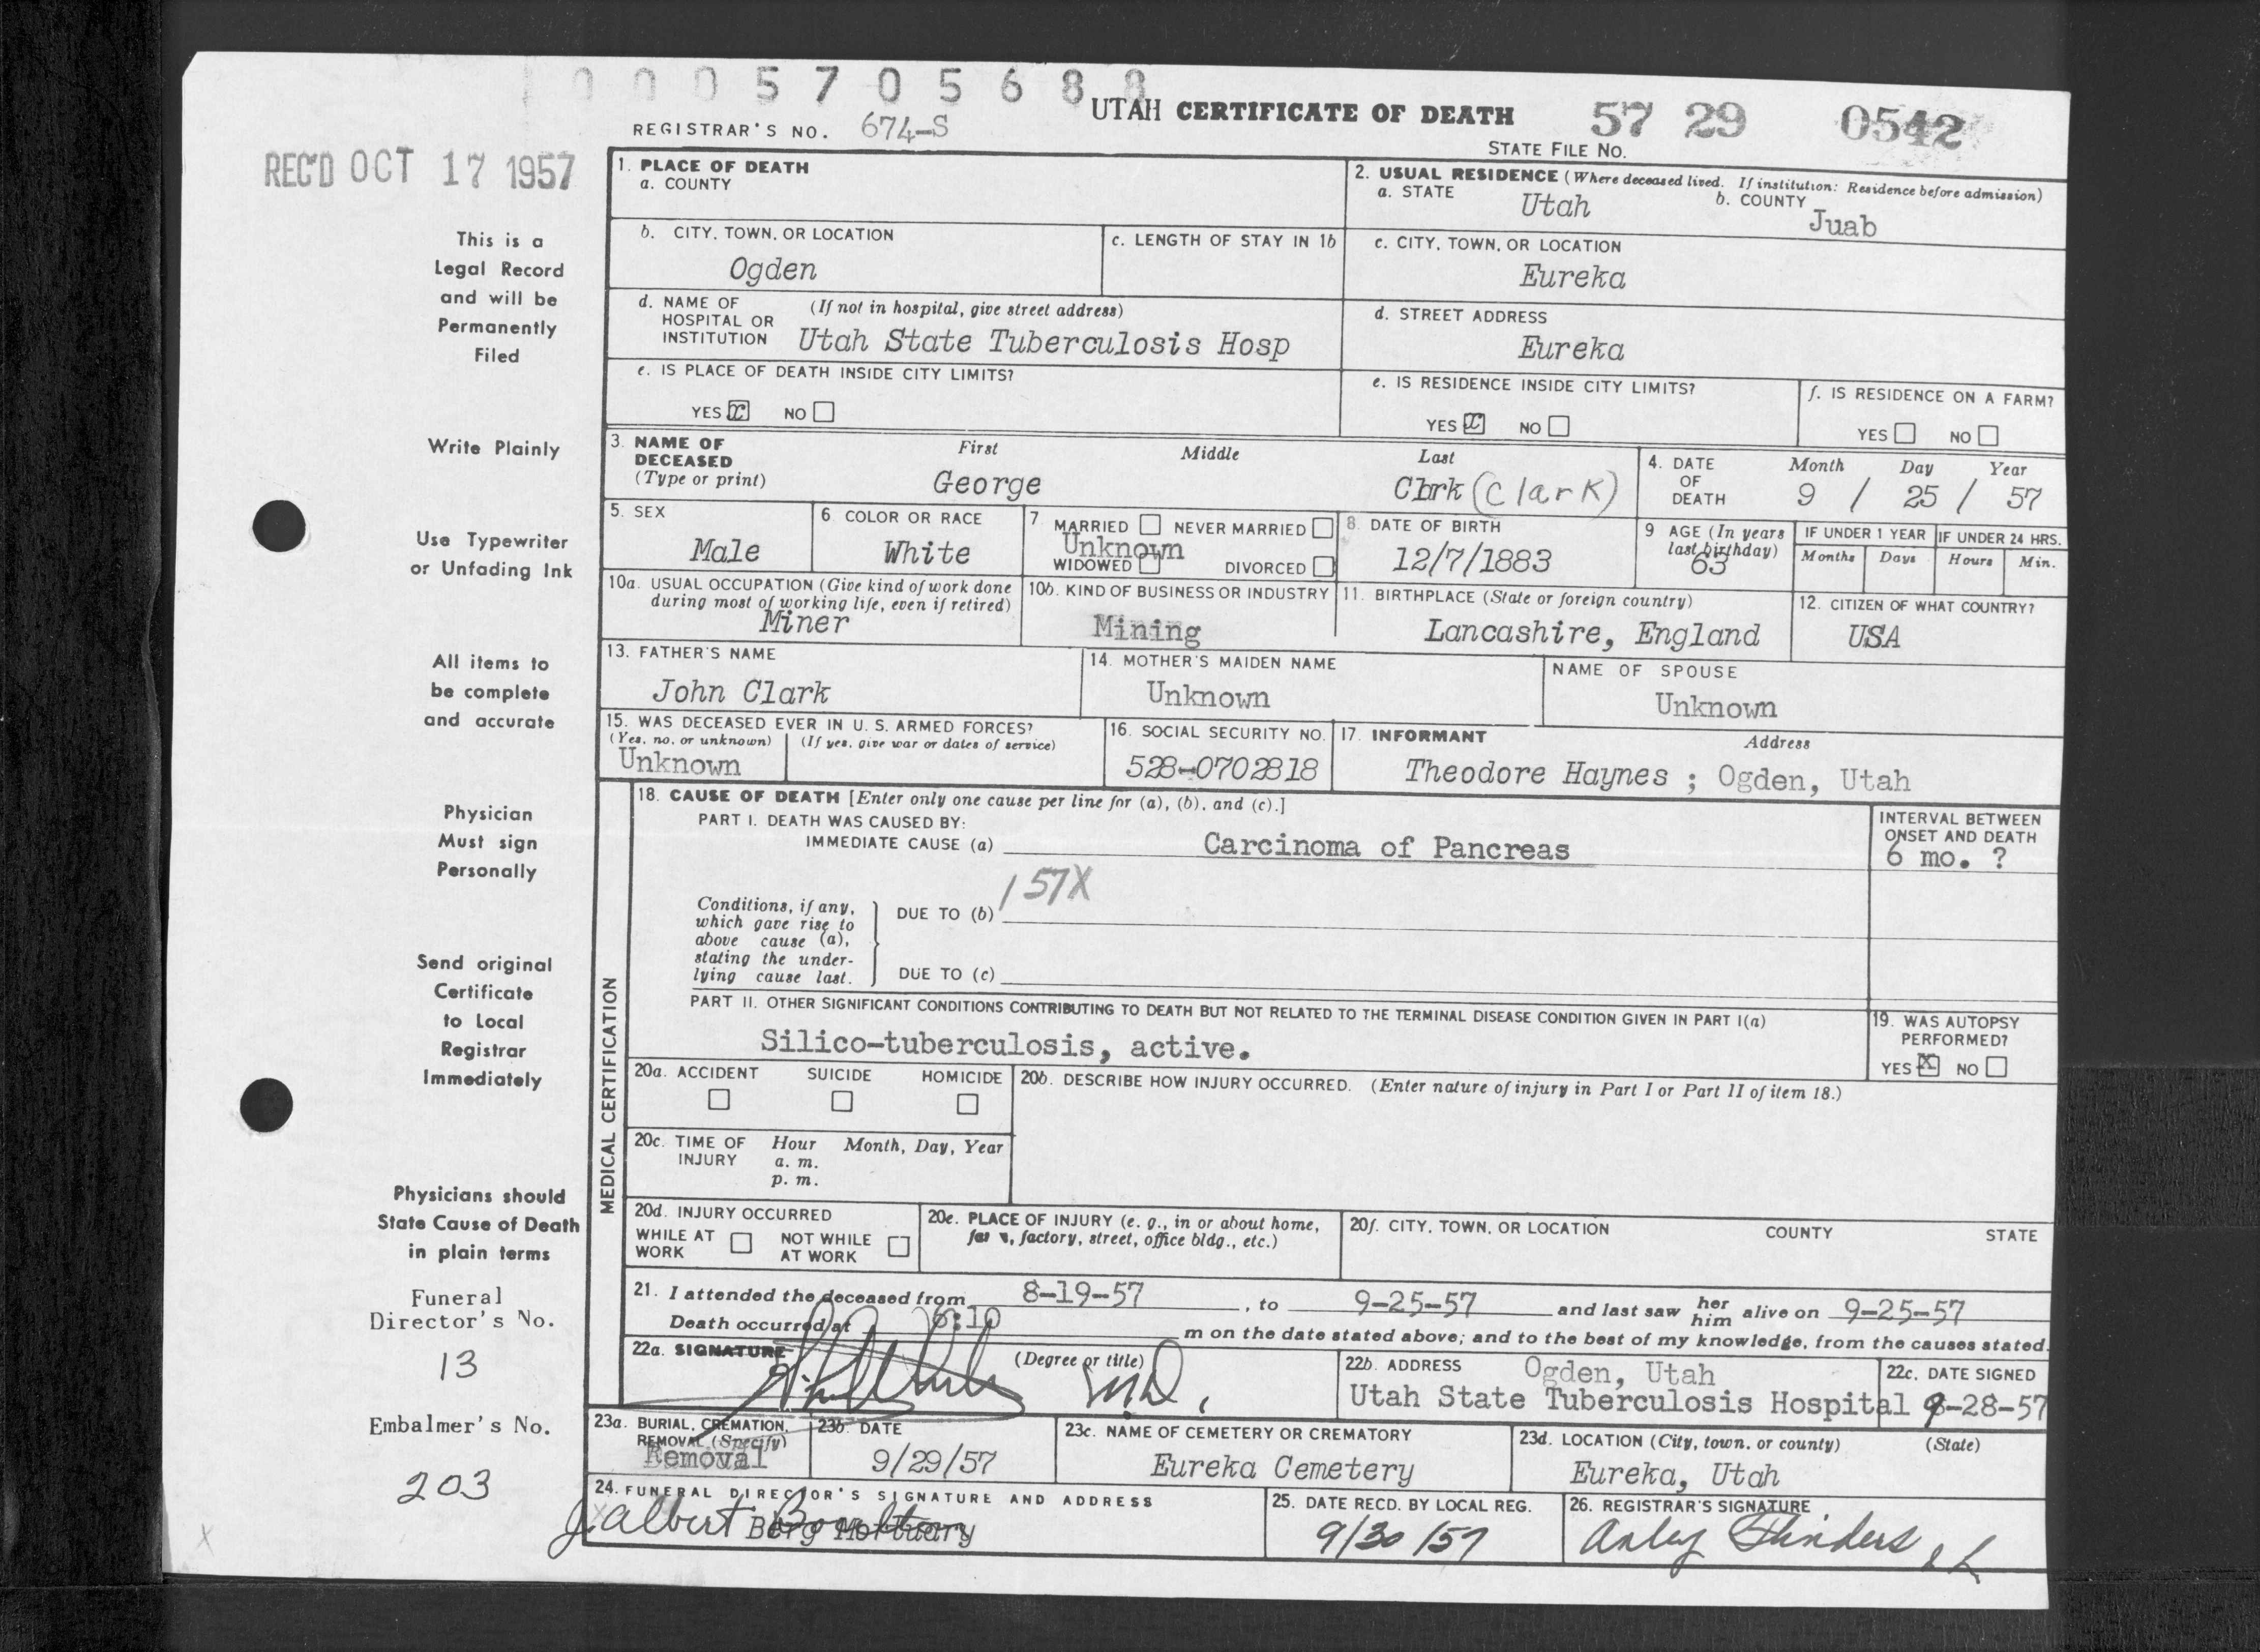 0 0 0 5 7 0 5 6 8 8
UTAH CERTIFICATE OF DEATH 57 29 0542
REGISTRAR'S NO. 674-S
STATE FILE NO.
REC'D OCT 17 1957
This is a
Legal Record
and will be
Permanently
Filed
Write Plainly
Use Typewriter
or Unfading Ink
All items to
be complete
and accurate
Physician
Must sign
Personally
Send original
Certificate
to Local
Registrar
Immediately
Physicians should
State Cause of Death
in plain terms
Funeral
Director's No.
13
Embalmer's No.
203
1. PLACE OF DEATH
a. COUNTY
2. USUAL RESIDENCE (Where deceased lived. If institution: Residence before admission)
a. STATE Utah b. COUNTY Juab
b. CITY, TOWN, OR LOCATION
Ogden
c. LENGTH OF STAY IN 1b
c. CITY, TOWN, OR LOCATION
Eureka
d. NAME OF HOSPITAL OR INSTITUTION (If not in hospital, give street address)
Utah State Tuberculosis Hosp
d. STREET ADDRESS
Eureka
e. IS PLACE OF DEATH INSIDE CITY LIMITS?
YES x NO
e. IS RESIDENCE INSIDE CITY LIMITS?
YES x NO
f. IS RESIDENCE ON A FARM?
YES NO
3. NAME OF DECEASED (Type or print)
First Middle Last
George Clark (Clark)
4. DATE OF DEATH
Month Day Year
9 / 25 / 57
5. SEX
Male
6. COLOR OR RACE
White
7. MARRIED NEVER MARRIED
Unknown
WIDOWED DIVORCED
8. DATE OF BIRTH
12/7/1883
9 AGE (In years last birthday)
63
IF UNDER 1 YEAR IF UNDER 24 HRS.
Months Days Hours Min.
10a. USUAL OCCUPATION (Give kind of work done
during most of working life, even if retired)
Miner
10b. KIND OF BUSINESS OR INDUSTRY
Mining
11. BIRTHPLACE (State or foreign country)
Lancashire, England
12. CITIZEN OF WHAT COUNTRY?
USA
13. FATHER'S NAME
John Clark
14. MOTHER'S MAIDEN NAME
Unknown
NAME OF SPOUSE
Unknown
15. WAS DECEASED EVER IN U. S. ARMED FORCES?
(Yes, no, or unknown) (If yes, give war or dates of service)
Unknown
16. SOCIAL SECURITY NO.
528-0702818
17. INFORMANT Address
Theodore Haynes ; Ogden, Utah
MEDICAL CERTIFICATION
18. CAUSE OF DEATH [Enter only one cause per line for (a), (b), and (c).]
PART I. DEATH WAS CAUSED BY:
IMMEDIATE CAUSE (a) Carcinoma of Pancreas
INTERVAL BETWEEN
ONSET AND DEATH
6 mo. ?
157X
Conditions, if any,
which gave rise to
above cause (a),
stating the under-
lying cause last.
DUE TO (b)
DUE TO (c)
PART II. OTHER SIGNIFICANT CONDITIONS CONTRIBUTING TO DEATH BUT NOT RELATED TO THE TERMINAL DISEASE CONDITION GIVEN IN PART I(a)
Silico-tuberculosis, active.
19. WAS AUTOPSY
PERFORMED?
YES X NO
20a. ACCIDENT SUICIDE HOMICIDE
20b. DESCRIBE HOW INJURY OCCURRED. (Enter nature of injury in Part I or Part II of item 18.)
20c. TIME OF INJURY
Hour Month, Day, Year
a. m.
p. m.
20d. INJURY OCCURRED
WHILE AT WORK NOT WHILE AT WORK
20e. PLACE OF INJURY (e. g., in or about home,
farm, factory, street, office bldg., etc.)
20f. CITY, TOWN, OR LOCATION COUNTY STATE
21. I attended the deceased from 8-19-57, to 9-25-57 and last saw her him alive on 9-25-57
Death occurred at 6:10 m on the date stated above; and to the best of my knowledge, from the causes stated.
22a. SIGNATURE (Degree or title)
M.D.
22b. ADDRESS Ogden, Utah
Utah State Tuberculosis Hospital
22c. DATE SIGNED
9-28-57
23a. BURIAL, CREMATION,
REMOVAL (Specify)
Removal
23b. DATE
9/29/57
23c. NAME OF CEMETERY OR CREMATORY
Eureka Cemetery
23d. LOCATION (City, town, or county) (State)
Eureka, Utah
24. FUNERAL DIRECTOR'S SIGNATURE AND ADDRESS
J Albert Boulton
Berg Mortuary
25. DATE RECD. BY LOCAL REG.
9/30/57
26. REGISTRAR'S SIGNATURE